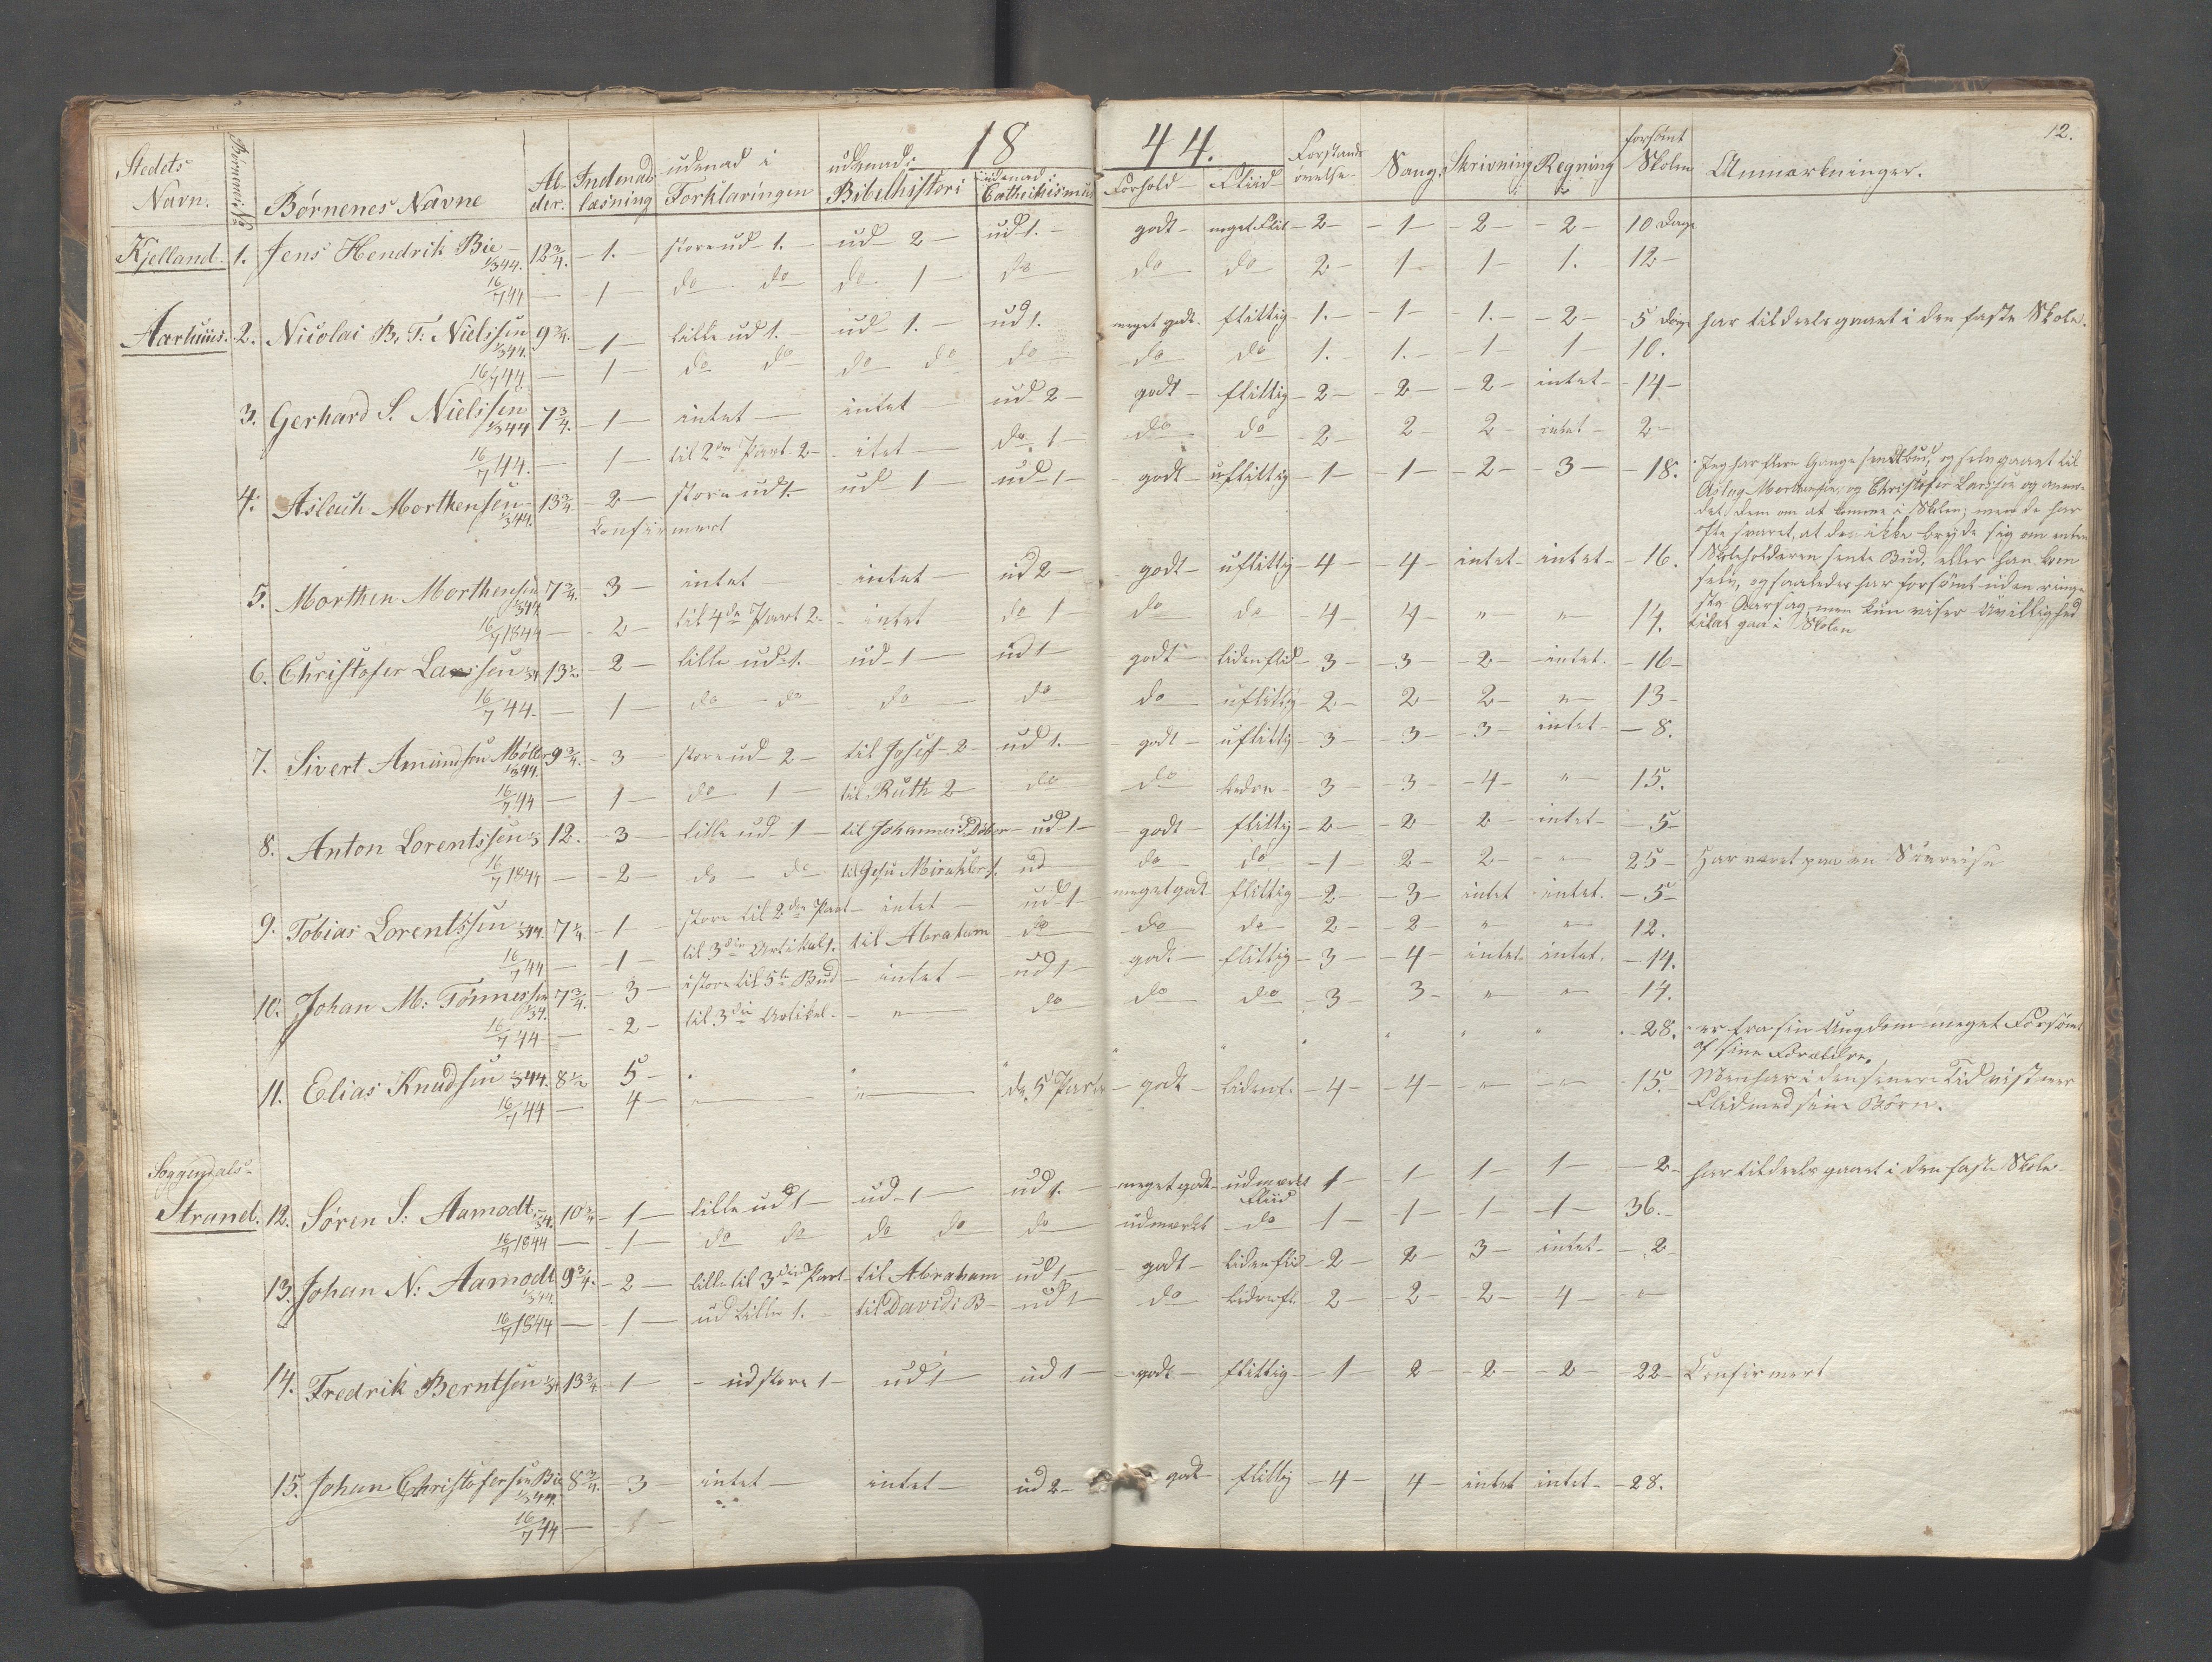 18 44. 12.
Stedets Navn. Børnenes No Børnenes Navne Alder. Indenadslæsning udenad i Forklaringen udenad: Bibelhistori udenad: Cathekismus Forhold Fliid Forstandsøvelse Sang. Skrivning Regning forsømt Skolen Anmærkninger.
Kjelland. 1. Jens Hendrik Bie 1/344. 12 3/4. 1. store ud 1. ud 2 ud 1. godt meget Flit 2 1 2 2 10 Dage
16/7 44 1 do do do 1 do do do 2 1 1 1. 12
Aarhuus. 2. Nicolai B. T. Nielssen 1/344. 9 3/4. 1 lille ud 1. ud 1. ud 1. meget godt. flittig 1. 1 1. 2 5 Dage har tildeels gaaet i den faste Skole.
16/7 44 1 do do do do do do do 1. 1. 1 1 10.
3. Gerhard S. Nielssen 1/344 7 3/4. 1 intet intet ud 2 godt flittig 2 2 2 intet 14
16/7 44. 1 til 2den Part 2 itet do 1 do do 2 2 2 intet 2
4. Aslach Morthensen 1/344. 13 3/4 2 store ud 1. ud 1 ud 1 godt uflittig 1 1 2 3 18. Jeg har flere Gange sendt bud, og selv gaaet til
Confirmert
Aslag Morthensen, og Christofer Larssen og anmo-
det dem om at komme i Skolen; men de har
ofte svaret, at de ikke bryde sig om enten
Skoleholderen sente Bud, eller han kom
selv, og saaledes har forsømt uden ringe
ste Aarsag, men kun viser Uvillighed
til at gaa i Skolen
5. Morthen Morthensen 1/344 7 3/4. 3 intet intet ud 2 godt uflittig 4 4 intet intet 16.
16/7 1844 2 til 4de Part 2 intet do 1 do do 4 4 " " 14.
6. Christofer Larssen 13 1/2 2 lille ud 1. ud 1 ud 1 godt liden flid 3 3 2 intet. 16
16/7 44. 1 do do do do do uflittig 2 2 2 " 13
7. Sivert Amundsen Møller 1/344. 9 3/4. 3 store ud 2 til Josef 2 ud 1. godt uflittig 3 3 3 intet 8.
16/7 44 1 do 1 til Ruth 2 do do bedre 3 3 4 " 15.
8. Anton Lorentssen 12. 3 lille ud 1 til Johannes d. Døber ud 1 godt flittig 2 2 2 intet 5
16/7 1844 2 do do til Jesu Mirakler 1. ud do do 1 2 2 " 25 Har været paa en Søereise
9. Tobias Lorentssen 1/344. 7 1/4 1 store til 2den Part intet ud 1 meget godt flittig 2 3 intet intet. 5
16/7 44 1 til 3die Artikel 1. til Abraham do do do 2 2 " " 12.
10. Johan M: Tønnessen 7 3/4. 3 i store til 5te Bud intet ud 1 godt flittig 3 4 intet intet. 14.
16/7 44 2 til 3die Artikel " do do do 3 3 " " 14.
11. Elias Knudsen 1/344. 8 1/2 5 " " " " " " " " " " 28. er fra sin Ungdom meget Forsømt
af sine Forældre.
16/7 44 4 " " do 5 Parter godt liden f. 4 4 " " 15. Men har i den senere Tid vist mer
Flid med sine Børn.
Soggendals-
Strand. 12. Søren S: Aamodt 10 3/4 1 lille ud 1 ud 1 ud 1. meget godt udmerket Fliid 1 1 1 1 2 har tildeels gaaet i den faste Skole
16/7 1844 1 do do do do do udmærket do 1 1 1 1 36.
13. Johan N: Aamodt 1/344. 9 3/4. 2 lille til 3die Part til Abraham ud 1 godt liden flid 2 2 3 intet 2
16/7 1844 1 ud lille 1. til David: B ud 1 do liden fl. 2 2 2 4 "
14. Fredrik Berntsen 13 3/4 1 ud store 1 ud 1 ud 1 godt flittig 1 2 2 2 22 Confirmert
15. Johan Christofersen Bie 1/344. 8 3/4. 3 intet intet ud 2 godt flittig 4 4 intet intet 28.
16/7 44 1